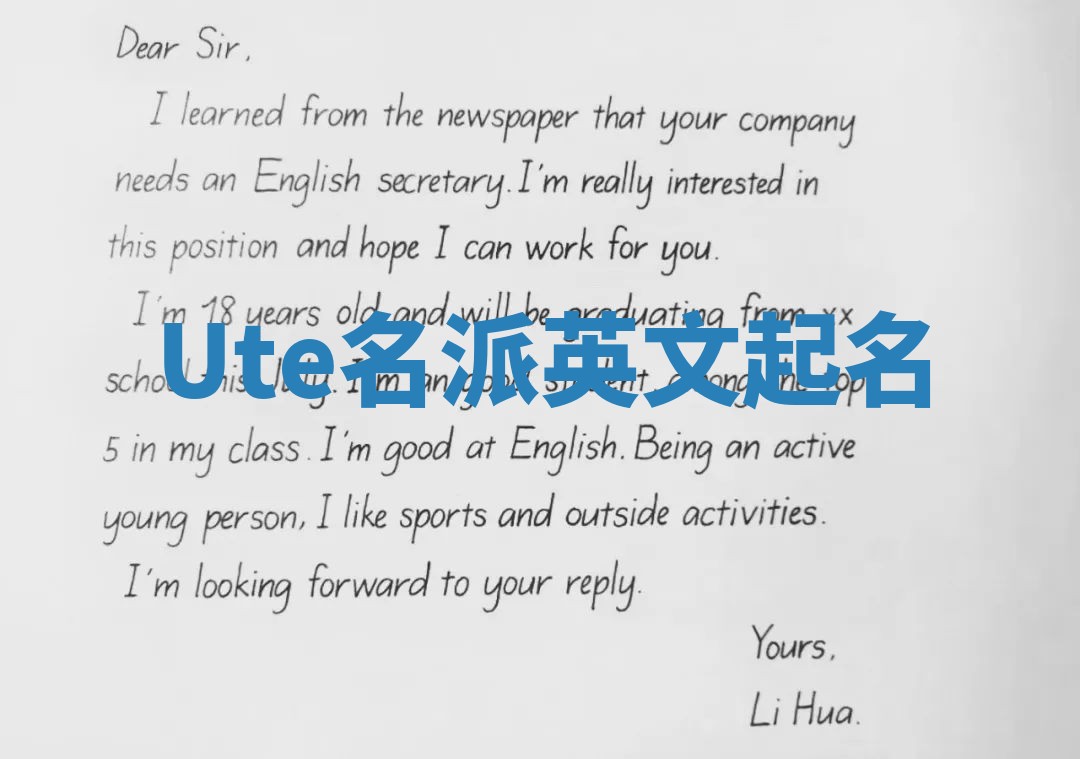 Dear Sir,
I learned from the newspaper that your company
needs an English secretary. I'm really interested in
this position and hope I can work for you.
I'm 18 years old and will be graduating from xx
Ute名派英文起名
school this July. I'm an good student, among the top
5 in my class. I'm good at English. Being an active
young person, I like sports and outside activities.
I'm looking forward to your reply.
Yours,
Li Hua.